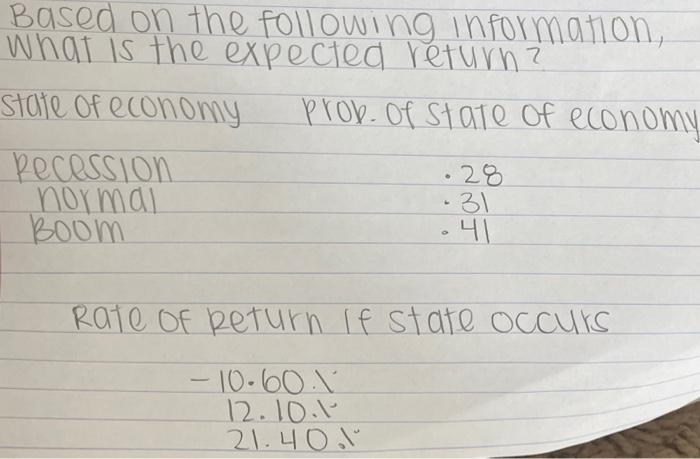 Based on the following information,
what is the expected return?
state of economy prob. of state of economy
Recession .28
normal .31
Boom .41
Rate of Return if state occurs
-10.60%
12.10%
21.40%